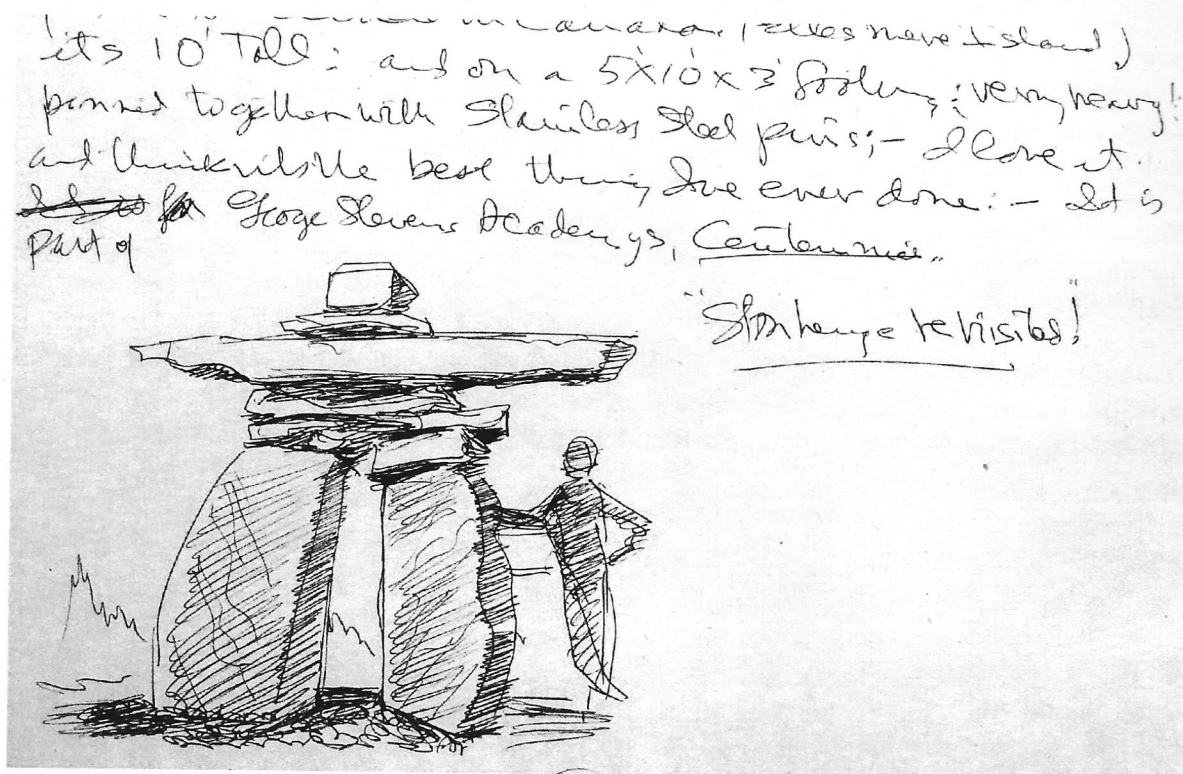 its 10' Tall; and on a 5'x10'x3' footing; very heavy!
pinned together with Stainless Steel pins;- I love it.
and think its the best thing I've ever done:- It is
for George Stevens Academys, Centennial
part of
"Stonhenge revisited!"